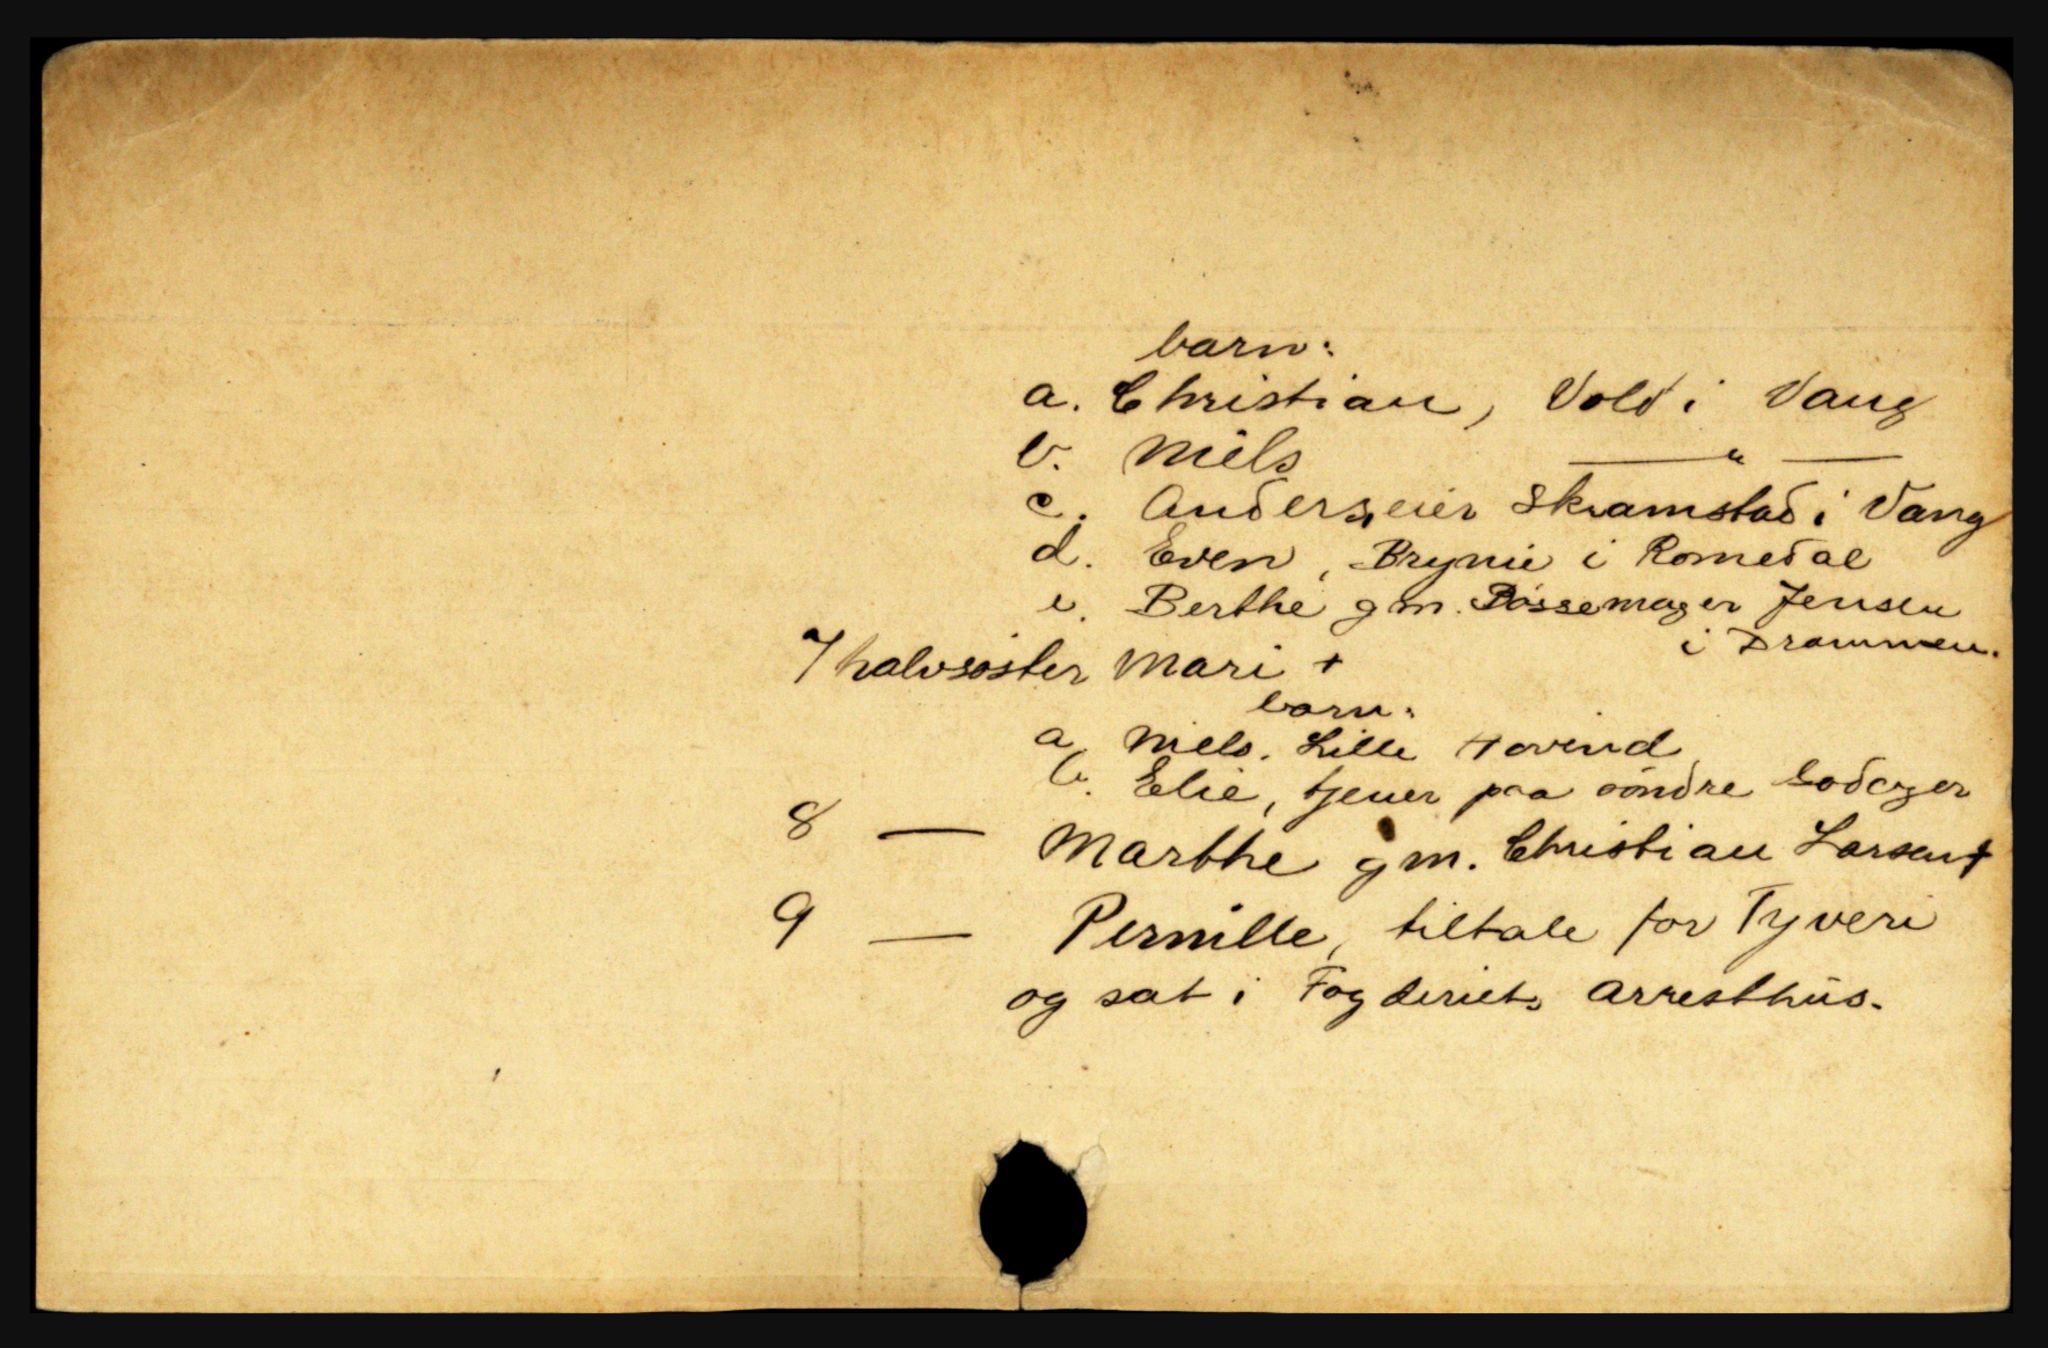 barn:
a. Christian, Vold i Vang
b. Niels — " —
c. Anders, eier Skramstad i Vang
d. Even, Brynie i Romedal
e. Berthe gm. Bössemager Jensen
i Drammen.
7 halvsöster Mari +
barn:
a. Niels. Lille Hovind
b. Elie, tjener paa söndre Godager
8 — Marthe gm. Christian Larsen +
9 — Pernille, tiltale for Tyveri
og sat i Fogderiets Arresthus.